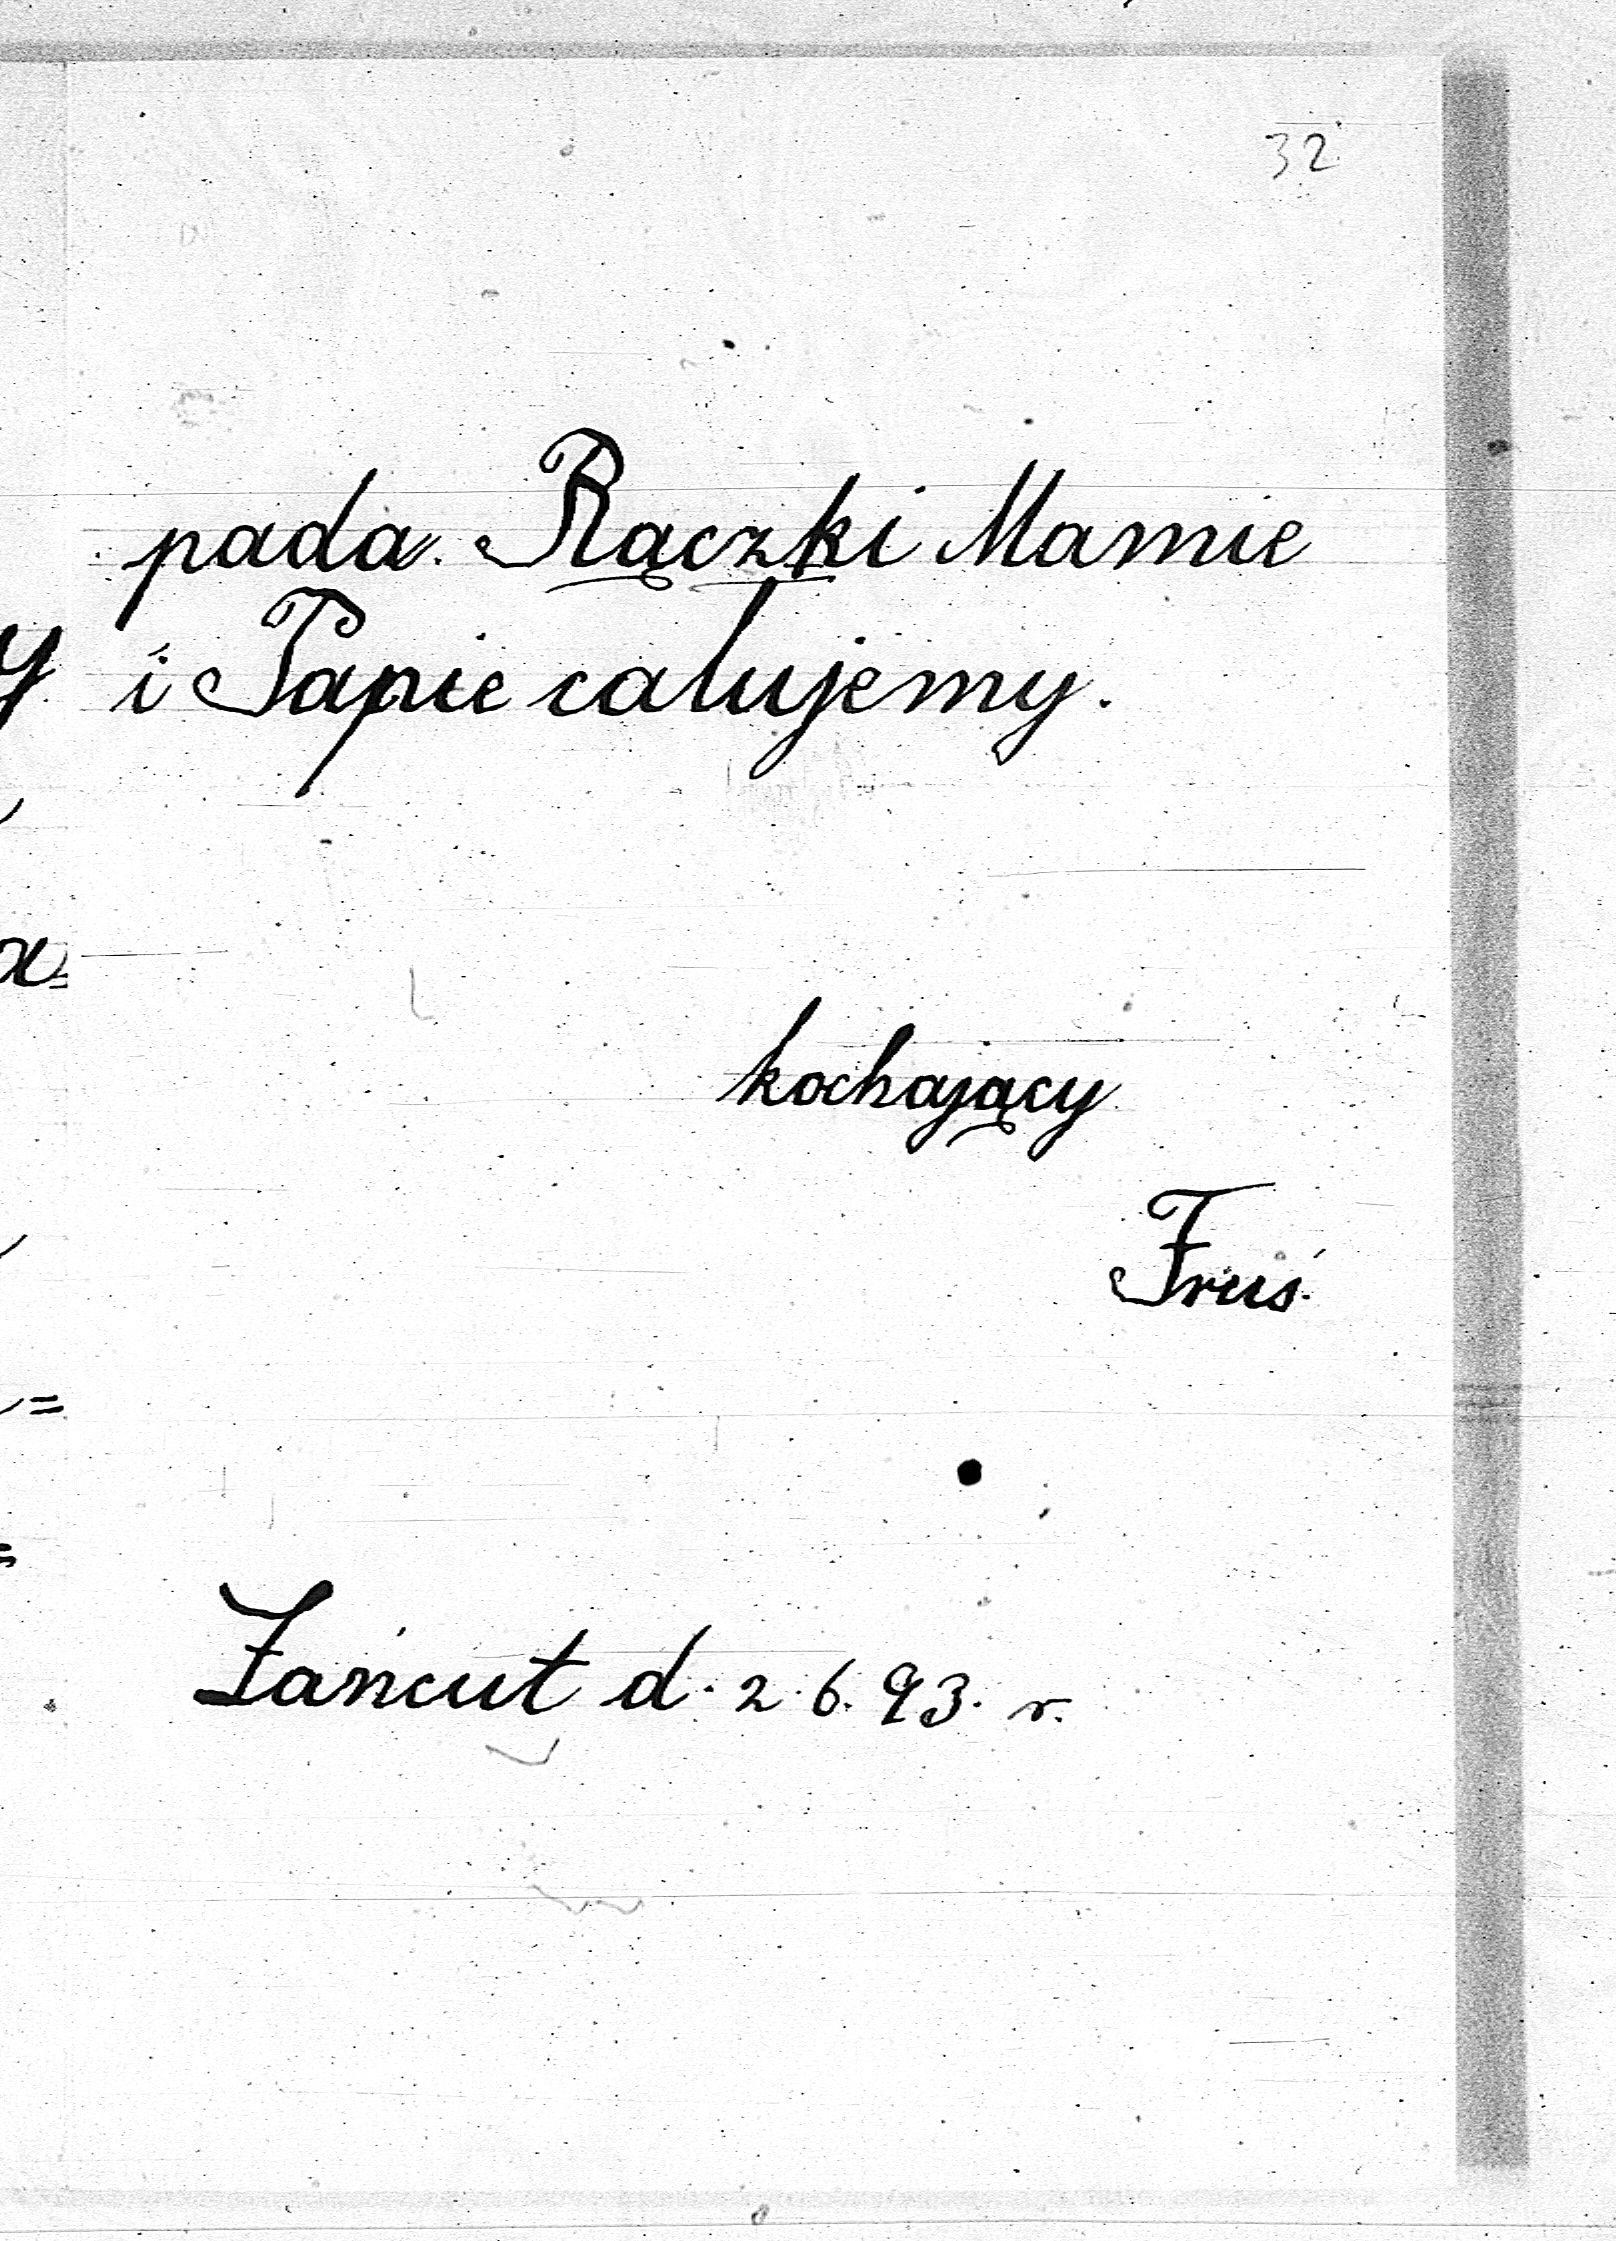 32
pada. Rączki Mamie
i Papie calujemy.
kochający
Fruś.
Łańcut d. 2. 6. 93. r.